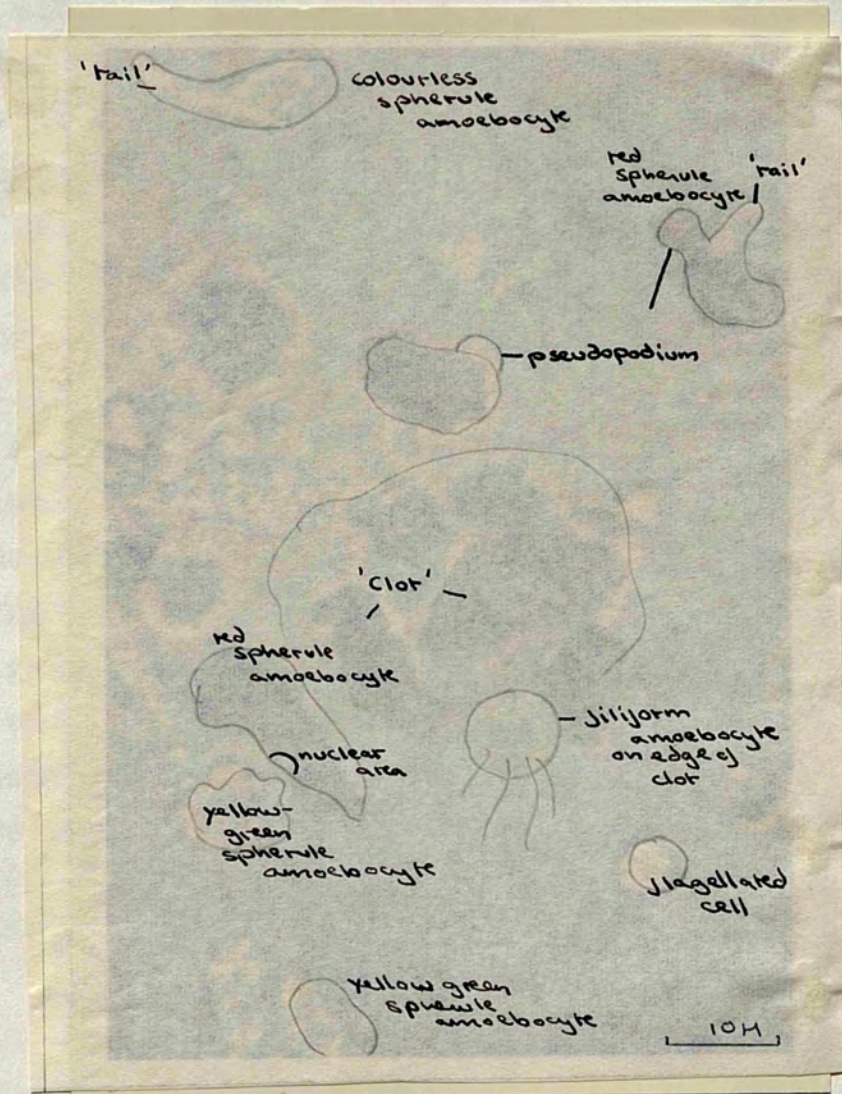 'tail'
colourless
spherule
amoebocyte
red
spherule
amoebocyte
'tail'
pseudopodium
'Clot'
red
spherule
amoebocyte
nuclear
area
filiform
amoebocyte
on edge of
clot
yellow-
green
spherule
amoebocyte
flagellated
cell
yellow green
spherule
amoebocyte
10µ